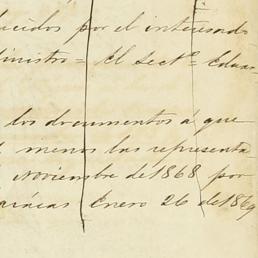 ucidos por el interesado
inistro = El Secto Eduar
los documentos á que
menos las representa
Noviembre de 1868 por
arácas Enero 26 de 1869